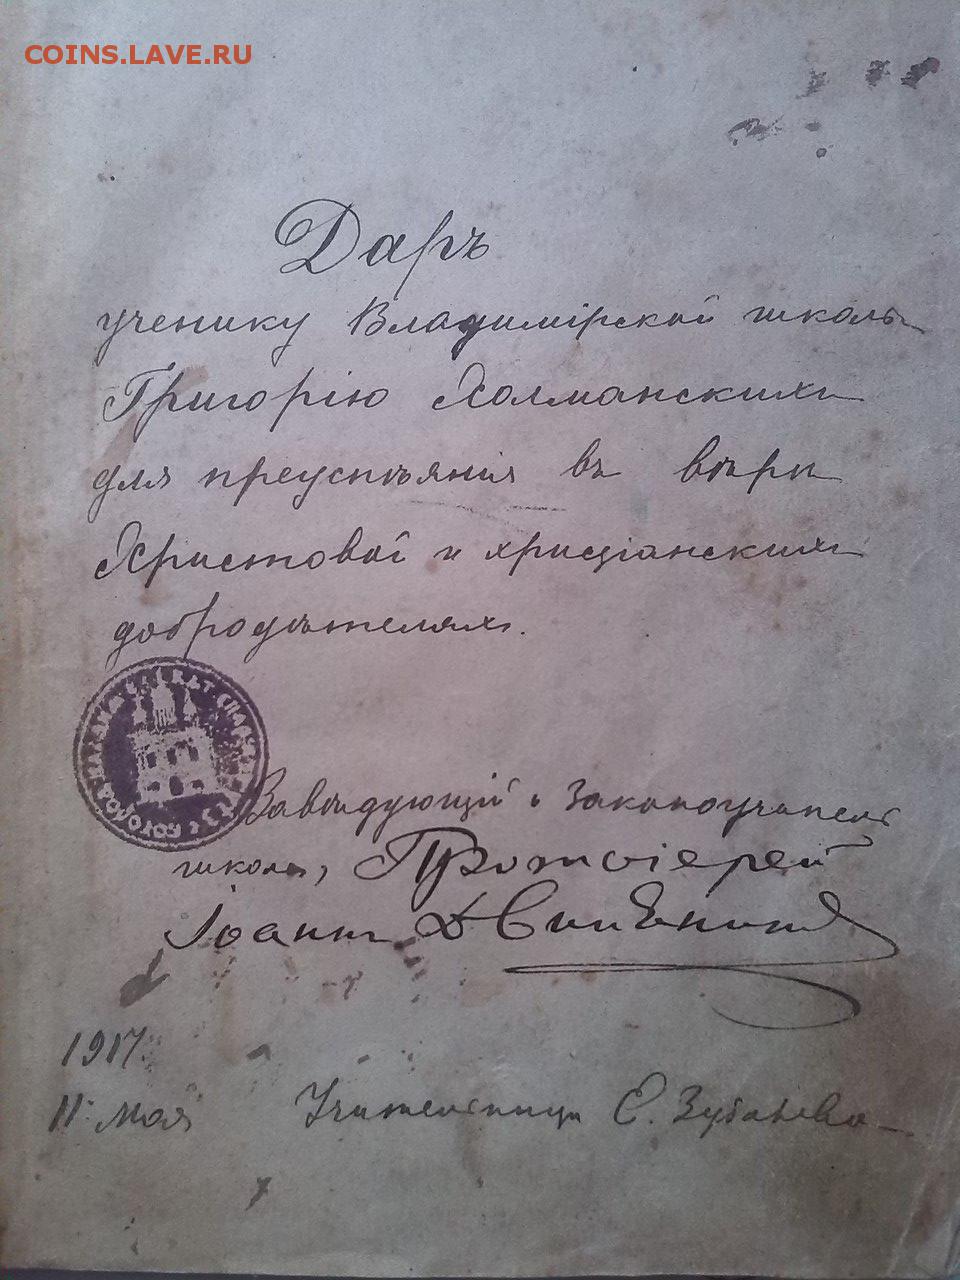 COINS.LAVE.RU
Даръ
ученику Владимірской школы
Григорію Холманскихъ
для преуспѣянія въ вѣрѣ
Христовой и христіанскихъ
добродѣтеляхъ.
Завѣдующій и Законоучитель
школы, Протоіерей
Іоаннъ
1917
11 мая Учительница Е. Зубанова